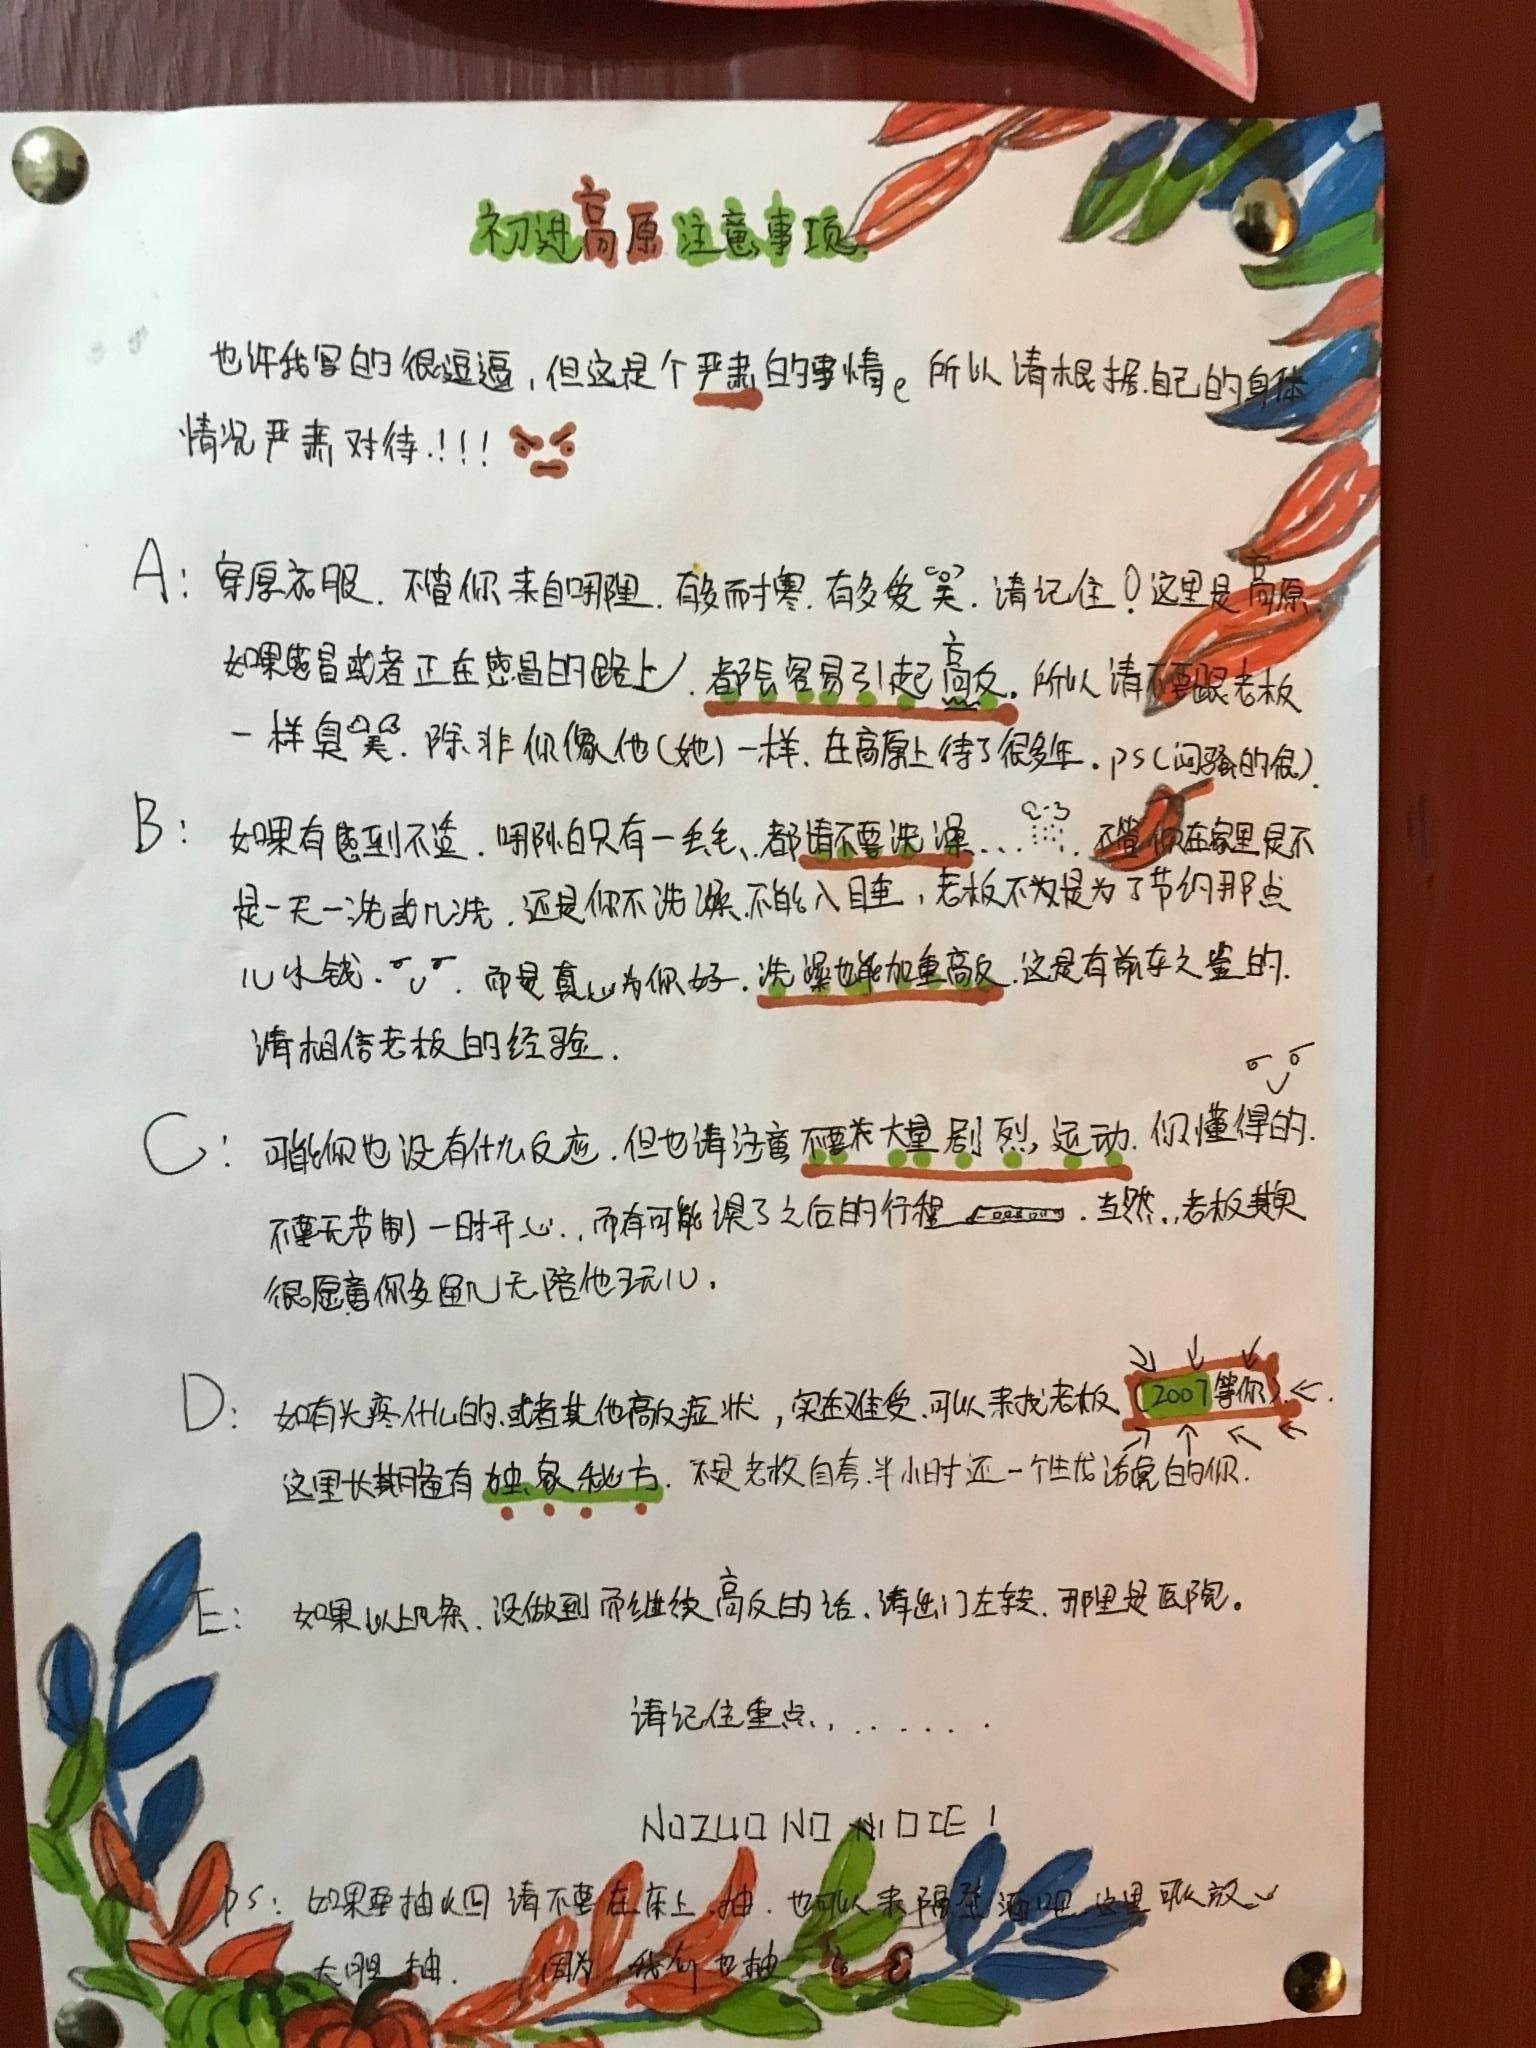 初进高原注意事项.
也许我写的很逗逼,但这是个严肃的事情。所以请根据自己的身体
情况严肃对待.!!!
A: 穿厚衣服.不管你来自哪里.有多耐寒.有多爱美.请记住!这里是高原.
如果感冒或者正在感冒的路上.都会容易引起高反。所以请不要跟老板
一样臭美.除非你像他(她)一样.在高原上待了很多年。ps(闷骚的很).
B: 如果有感到不适.哪怕只有一丢丢、都请不要洗澡......不管你在家里是不
是一天一洗或几洗.还是你不洗澡不能入目垂,老板不为是为了节约那点
儿水钱.而是真心为你好.洗澡也能加重高反.这是有前车之鉴的.
请相信老板的经验.
C: 可能你也没有什么反应.但也请注意不要大量剧烈运动.你懂得的.
不要无节制一时开心..而有可能误了之后的行程.当然..老板其实
很愿意你多留几天陪他玩儿.
D: 如有头疼什么的.或者其他高反症状,实在难受.可以来找老板(2007等你)
这里长期备有独家秘方.不是老板自夸.半小时还一个生龙活虎的你.
E: 如果以上几条.没做到而继续高反的话.请出门左转.那里是医院。
请记住重点........
NOZUO NO NI DIE !
ps: 如果要抽烟请不要在床上抽.也可以来隔壁酒吧.这里可以放心
大胆抽.因为,我们也抽